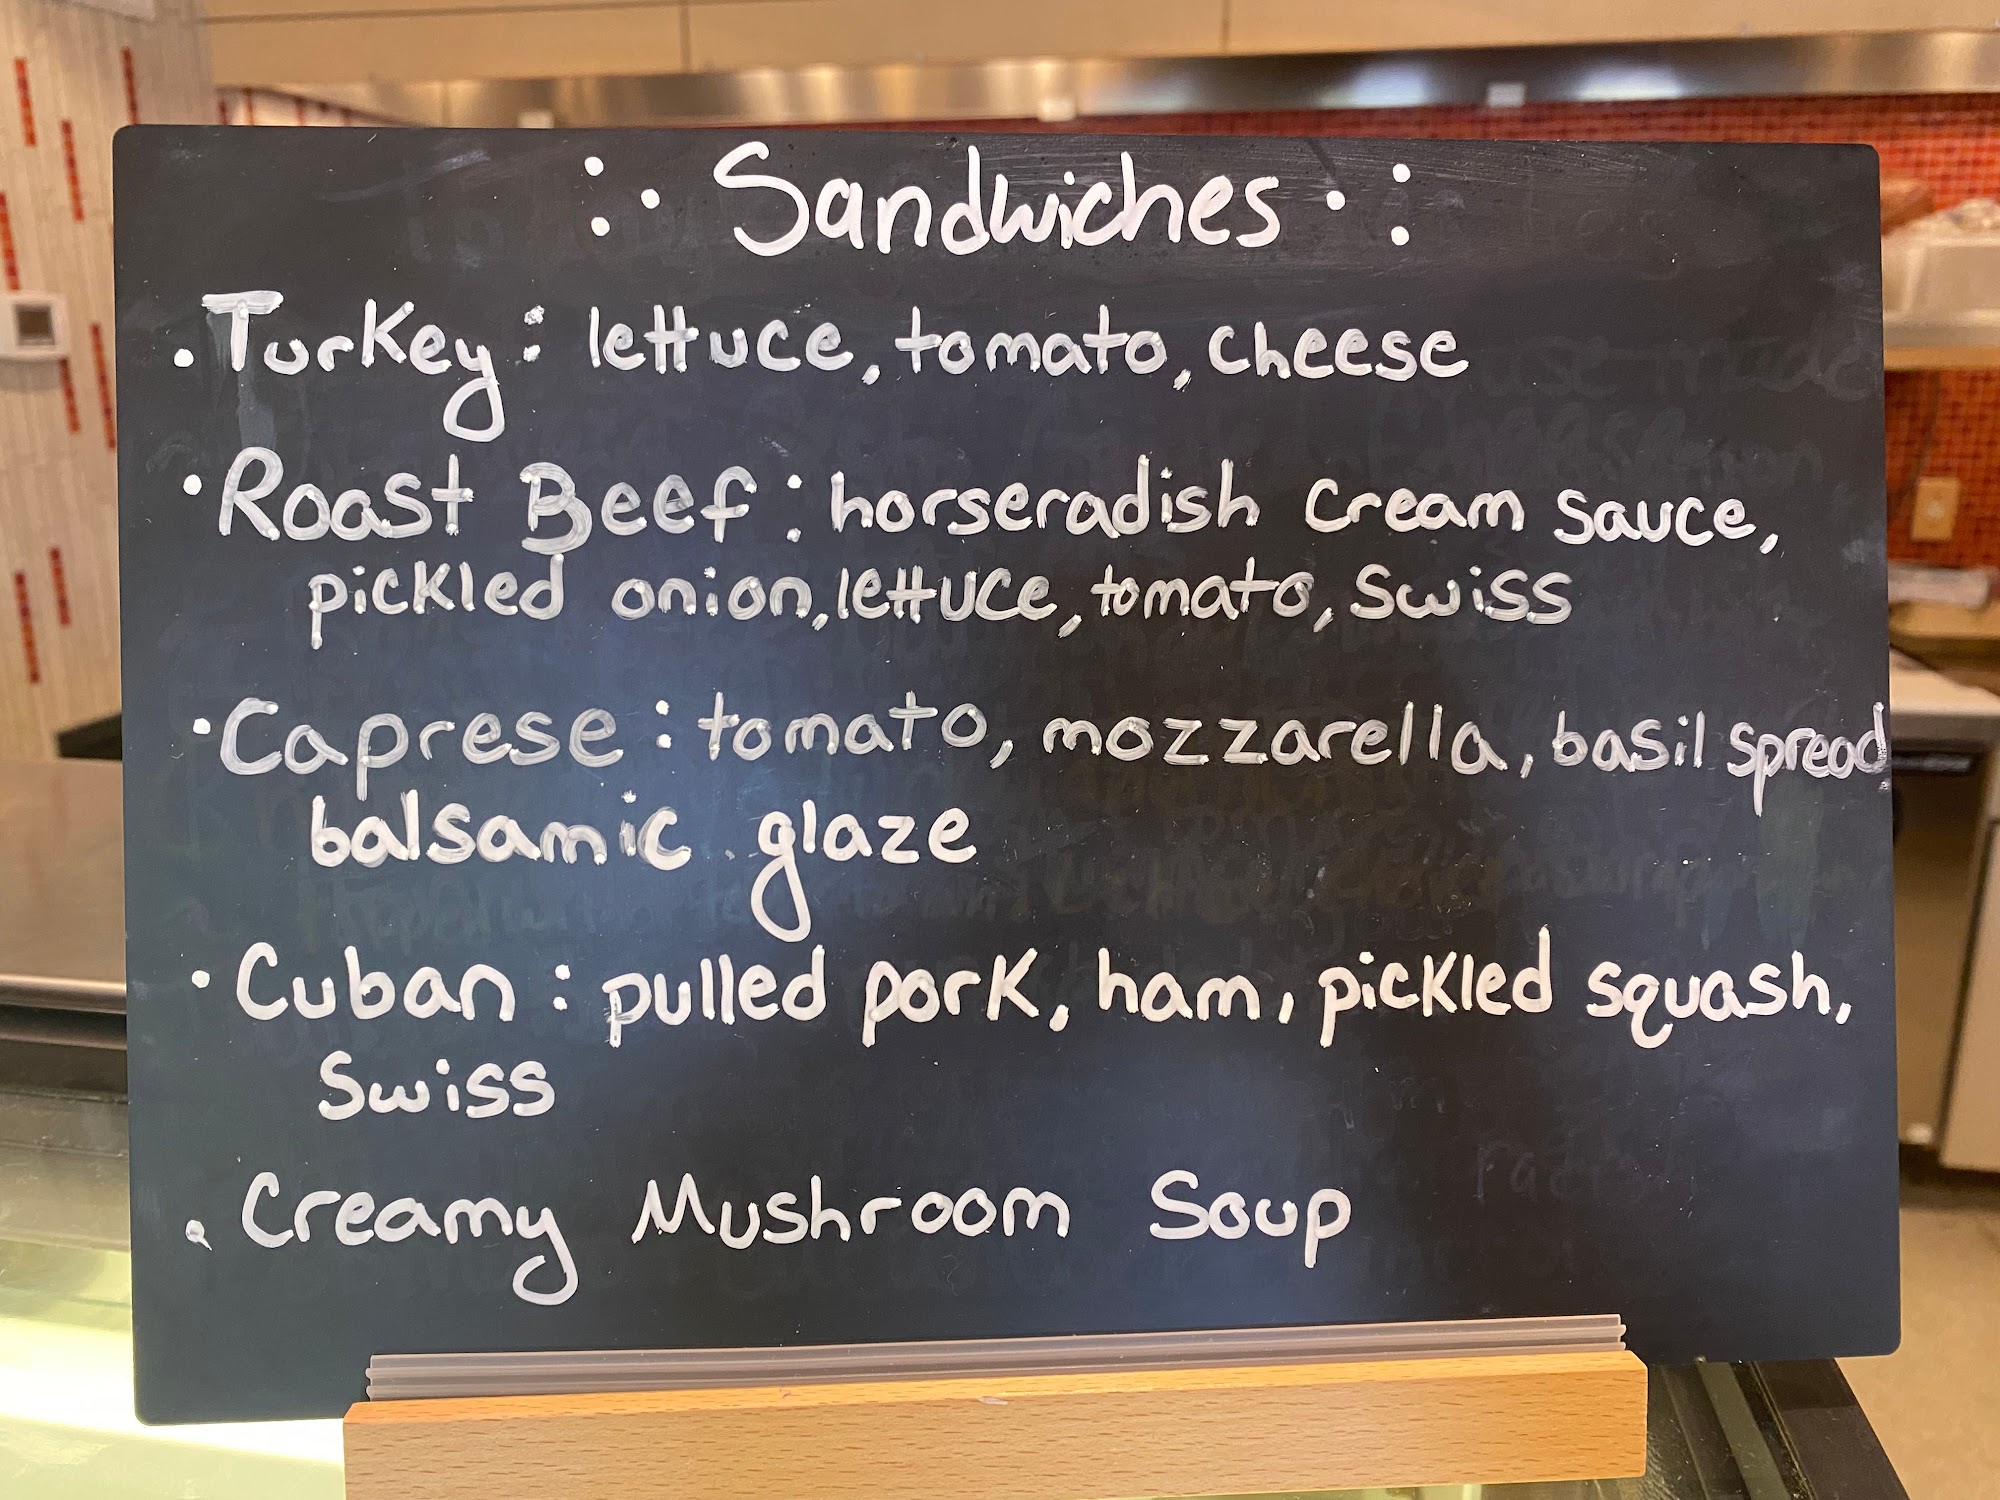 Sandwiches
• Turkey: lettuce, tomato, cheese
• Roast Beef: horseradish cream sauce,
pickled onion, lettuce, tomato, swiss
• Caprese: tomato, mozzarella, basil spread
balsamic glaze
• Cuban: pulled pork, ham, pickled squash,
Swiss
• Creamy Mushroom Soup